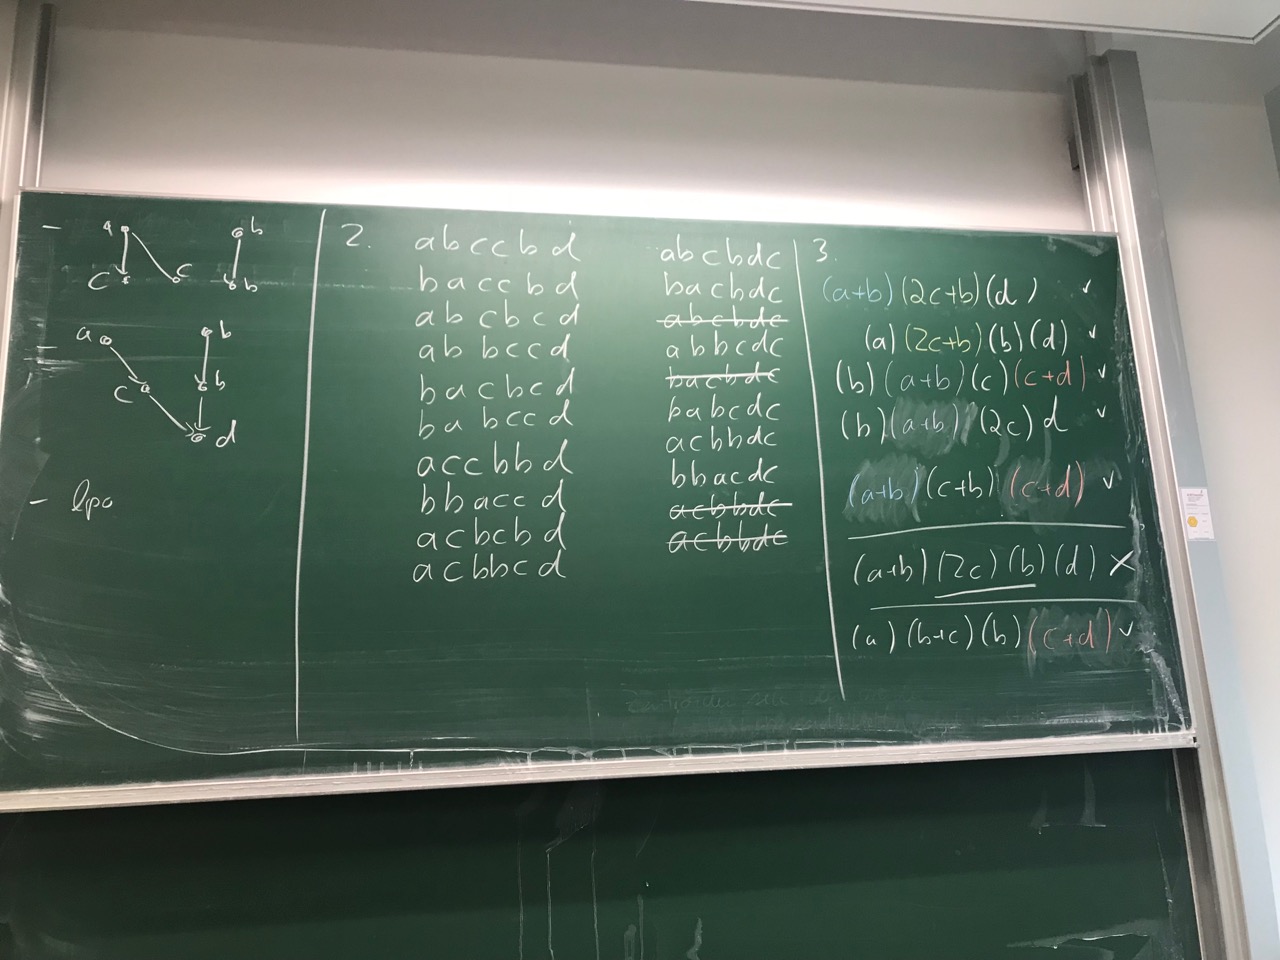 - a b
c c b
- a b
c b
d
- lpo
2.
abccbd
baccbd
abcbcd
abbccd
bacbcd
babccd
accbbd
bbaccd
acbcbd
acbbcd
abcbdc
bacbdc
abcbdc
abbcdc
bacbdc
babcdc
acbbdc
bbacdc
acbbdc
acbbdc
3.
(a+b)(2c+b)(d) ✓
(a)(2c+b)(b)(d) ✓
(b)(a+b)(c)(c+d) ✓
(b)(a+b)(2c)d ✓
(a+b)(c+b)(c+d) ✓
(a+b)(2c)(b)(d) ×
(a)(b+c)(b)(c+d) ✓